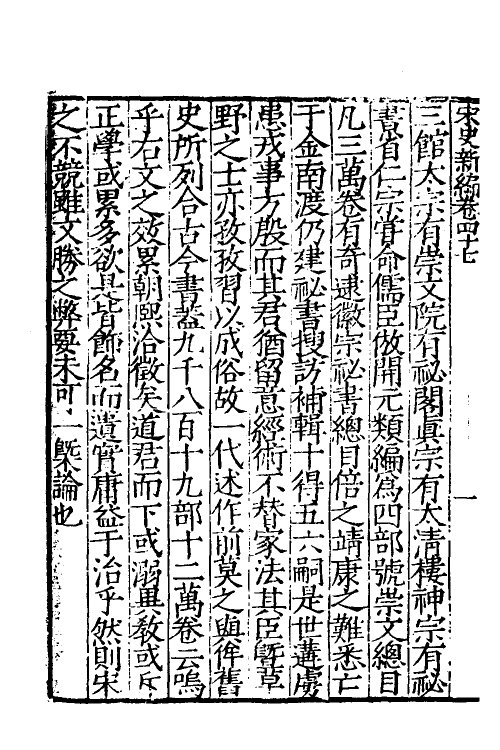 宋史新編卷四十七
一
三館太宗有崇文院有祕閣眞宗有太清樓神宗有祕
書省仁宗甞命儒臣倣開元類編爲四部號崇文總目
凡三萬卷有奇逮徽宗祕書總目倍之靖康之難悉亡
于金南渡仍建祕書搜訪補輯十得五六嗣是世遘虜
患戎事方殷而其君猶留意經術不替家法其臣曁草
野之士亦孜孜習以成俗故一代述作前莫之與侔舊
史所列合古今書葢九千八百十九部十二萬卷云嗚
乎右文之效累朝熙洽徵矣道君而下或溺異敎或斥
正學或累多欲是皆飾名而遺實庸益于治乎然則宋
之不競雖文勝之弊要未可一槩論也